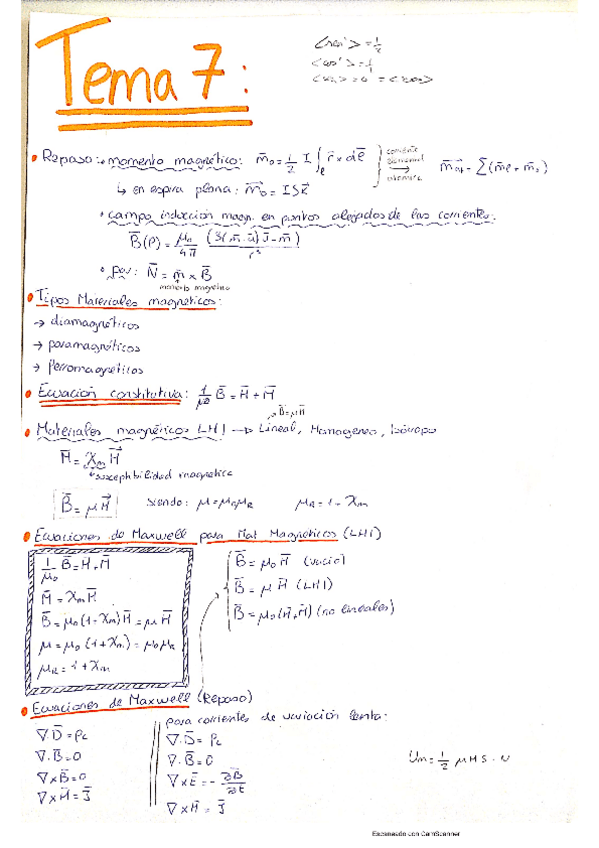 Tema 7:
<cos> = 0 = <sen>
• Repaso: → momento magnético: m̄₀ = 1/2 I ∫ℓ r̄ × dℓ̄
corriente elemental → atómica
m̄at = Σ(m̄e + m̄s)
↳ en espira plana: m̄₀ = I S k̄
• campo inducción magn. en puntos alejados de las corrientes:
B̄(P) = μ₀/4π (3(m̄·ū)ū - m̄)/r³
• par: N̄ = m̄ × B̄
momento magnético
• Tipos Materiales magnéticos:
→ diamagnéticos
→ paramagnéticos
→ ferromagnéticos
• Ecuación constitutiva: 1/μ₀ B̄ = H̄ + M̄
B̄ = μH̄
• Materiales magnéticos LHI → Lineal, Homogeneo, Isótropo
M̄ = χm H̄
↳ susceptibilidad magnética
B̄ = μH̄ siendo: μ = μ₀μR μR = 1 + χm
• Ecuaciones de Maxwell para Mat Magnéticos (LHI)
1/μ₀ B̄ = H̄ + M̄
M̄ = χm H̄
B̄ = μ₀(1 + χm)H̄ = μH̄
μ = μ₀(1 + χm) = μ₀μR
μR = 1 + χm
B̄ = μ₀H̄ (vacío)
B̄ = μH̄ (LHI)
B̄ = μ₀(H̄ + M̄) (no lineales)
• Ecuaciones de Maxwell (Repaso)
∇·D̄ = ρL
∇·B̄ = 0
∇×B̄ = 0
∇×H̄ = J̄
para corrientes de variación lenta:
∇·D̄ = ρL
∇·B̄ = 0
∇×Ē = -∂B̄/∂t
∇×H̄ = J̄
Um = 1/2 μHS · N
Escaneado con CamScanner